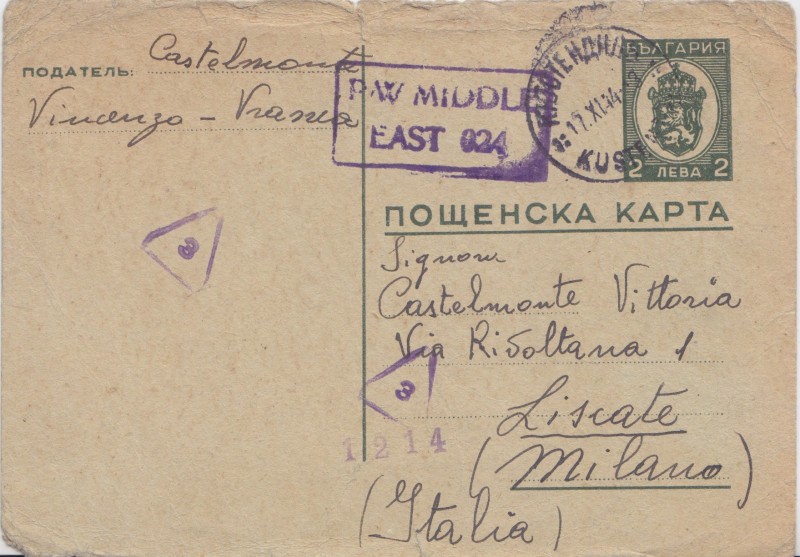 ПОДАТЕЛЬ: Castelmonte
Vincenzo - Vrasca
P.W MIDDLE
EAST 024
17.XI.44
KUST
БЪЛГАРИЯ
2 ЛЕВА 2
ПОЩЕНСКА КАРТА
Signora
Castelmonte Vittoria
Via Rivoltana 1
Liscate
(Milano)
(Italia)
a
a
1214